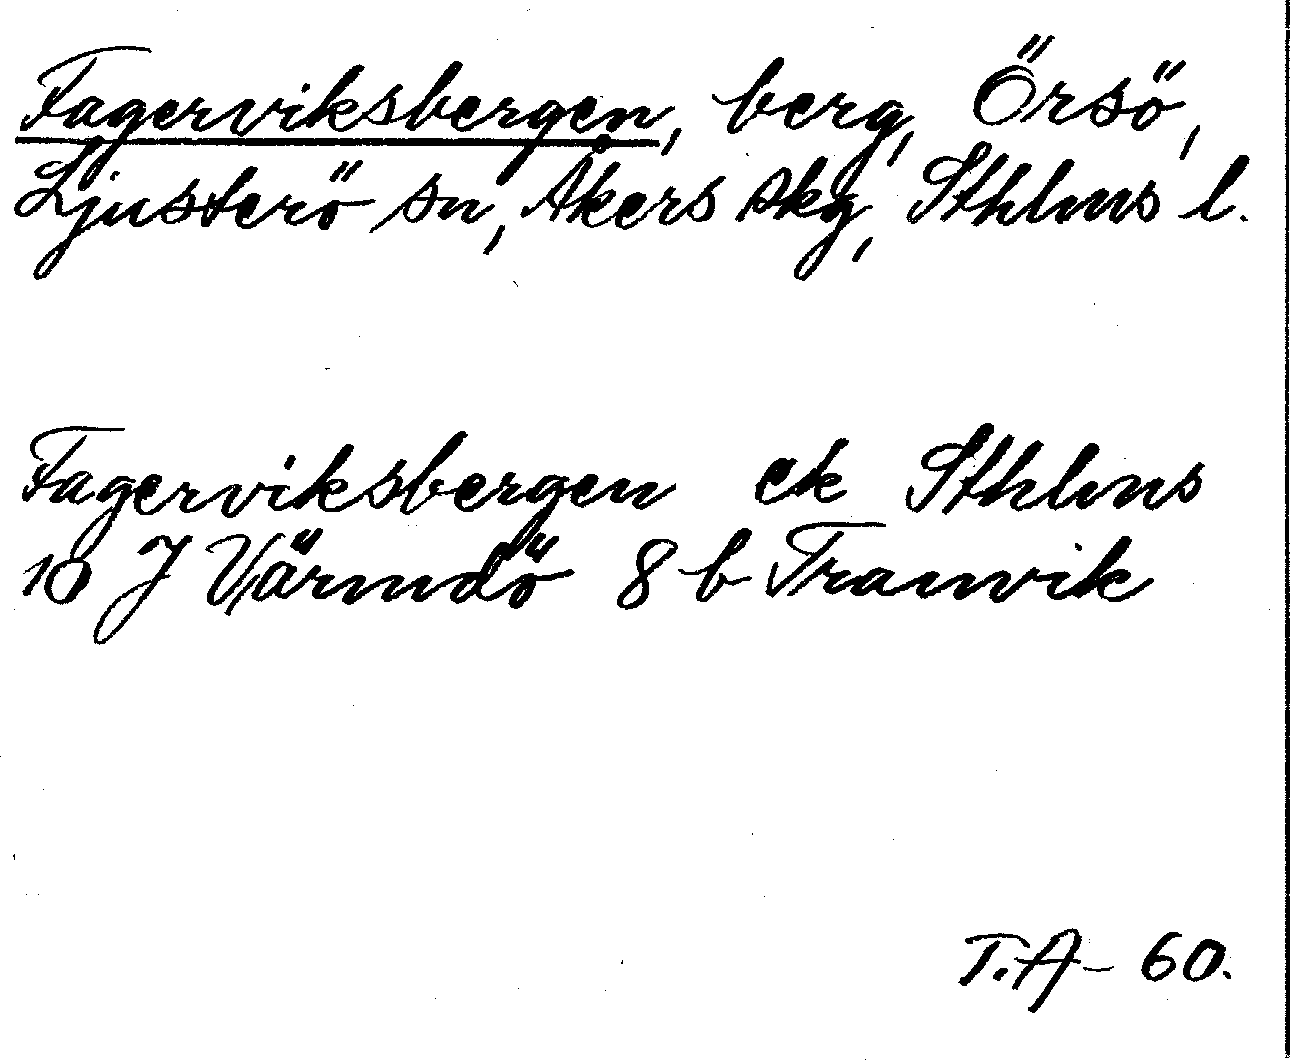 Fagerviksbergen, berg, Örsö,
Ljusterö sn, Åkers skg, Sthlms l.
Fagerviksbergen ek Sthlms
10 J Värmdö 8 b Tranvik
T.A - 60.